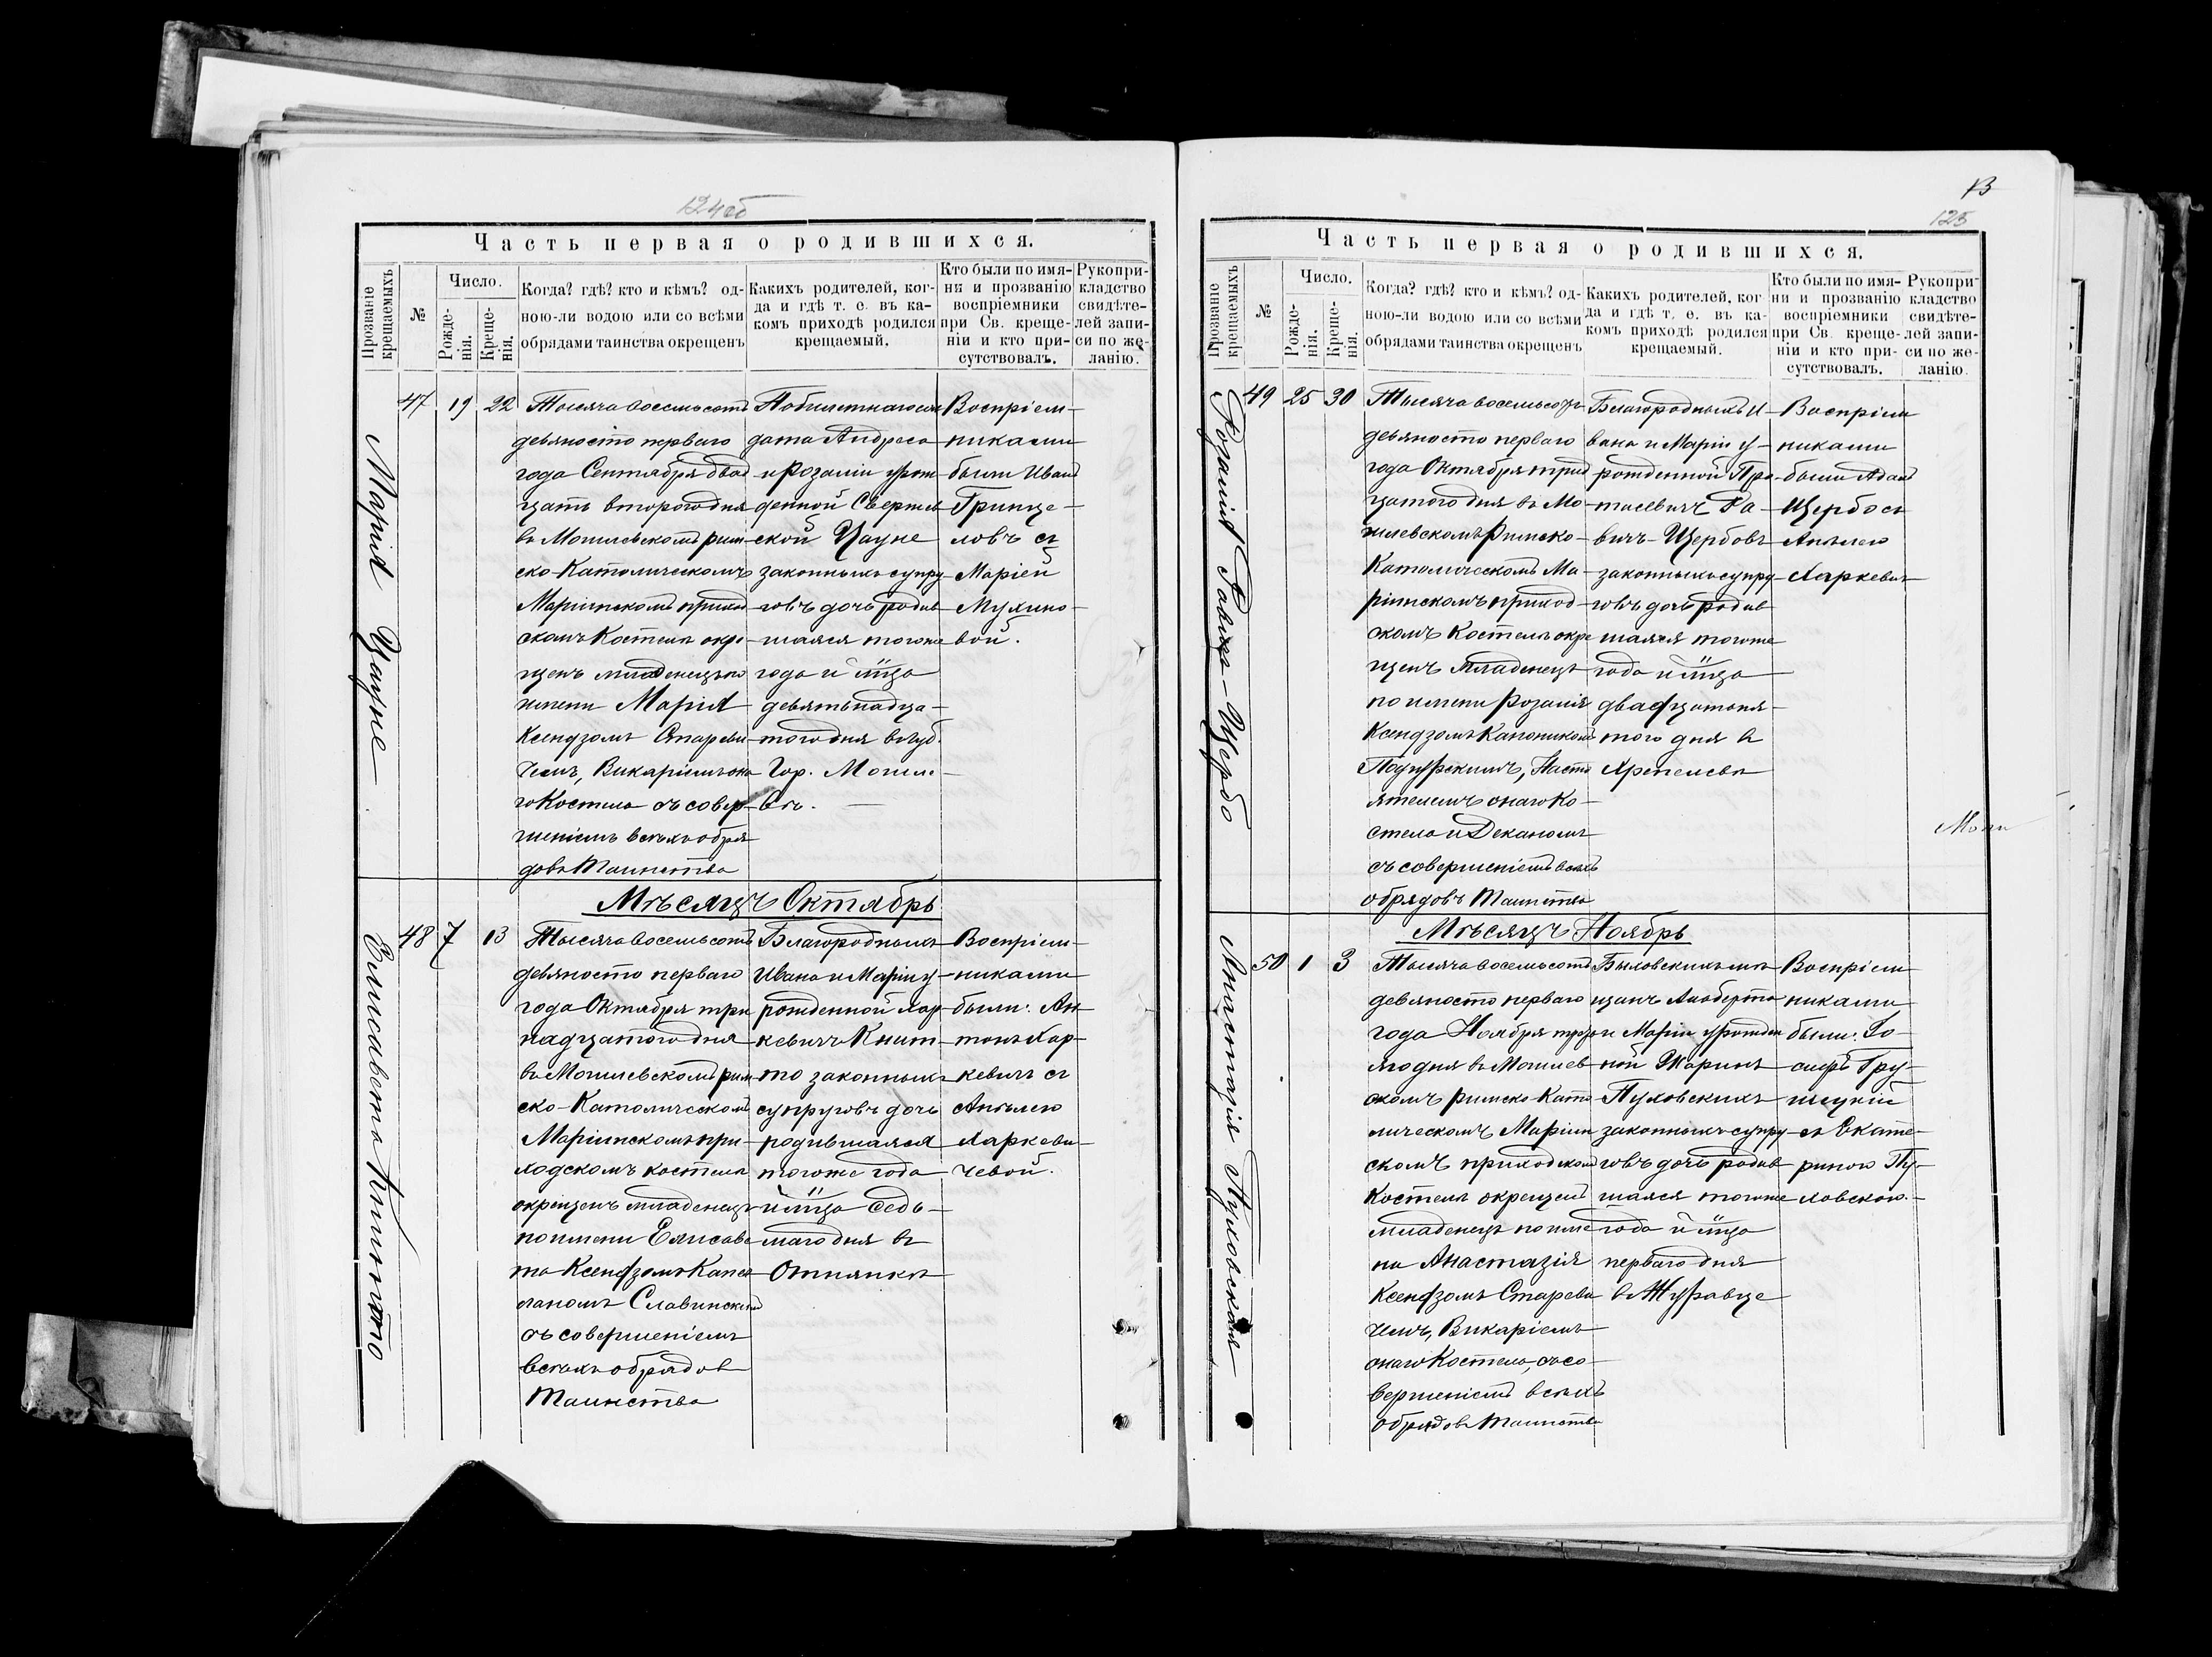 124об
Часть первая о родившихся.
Прозваніе крещаемыхъ
№
Число.
Рожденія.
Крещенія.
Когда? гдѣ? кто и кѣмъ? од-
ною-ли водою или со всѣми
обрядами таинства окрещенъ
Какихъ родителей, ког-
да и гдѣ т. е. въ ка-
комъ приходѣ родился
крещаемый.
Кто были по имя-
ни и прозванію
воспріемники
при Св. креще-
ніи и кто при-
сутствовалъ.
Рукопри-
кладство
свидѣте-
лей запи-
си по же-
ланію.
Марія Цауне
47 19 22
Тысяча восемьсотъ
девяносто перваго
года Сентября двад
цать второго дня
въ Могилевскомъ рим-
ско-Католическомъ
Маріинскомъ приход
скомъ Костелѣ окре-
щенъ младенецъ по
имени Марія
Ксендзомъ Стареви-
чемъ, Викаріемъ она
го Костела съ совер-
шеніемъ всѣхъ обря
довъ Таинства
дата Андрея
и Розаліи урож
денной
ской Цауне
законныхъ супру-
говъ дочь родив
шаяся тогоже
года и мца
девятьнадца-
того дня въ губ.
Гор. Могиле-
вѣ.
Воспріем-
никами
были Иванъ
Гринце-
ловъ съ
Маріей
Мухино-
вой.
Мѣсяцъ Октябрь
Елисавета Книпто
48 7 13
Тысяча восемьсотъ
девяносто перваго
года Октября три
надцатого дня
въ Могилевскомъ рим
ско-Католическомъ
Маріинскомъ при-
ходскомъ костелѣ
окрещенъ младенецъ
по имени Елисаве
та Ксендзомъ Капел
ланомъ Славинскимъ
съ совершеніемъ
всѣхъ обрядов
Таинства
Благородныхъ
Ивана и Маріи у-
рожденной Хар-
кевичъ Книп-
то законныхъ
супруговъ дочь
родившаяся
тогоже года
и мца седь-
маго дня въ
Отнянкѣ
Воспріем-
никами
были: Ан-
тонъ Хар-
кевичъ съ
Анѣлею
Харкеви-
чевой.
13
125
Часть первая о родившихся.
Прозваніе крещаемыхъ
№
Число.
Рожденія.
Крещенія.
Когда? гдѣ? кто и кѣмъ? од-
ною-ли водою или со всѣми
обрядами таинства окрещенъ
Какихъ родителей, ког
да и гдѣ т. е. въ ка-
комъ приходѣ родился
крещаемый.
Кто были по имя-
ни и прозванію
воспріемники
при Св. креще-
ніи и кто при-
сутствовалъ.
Рукопри-
кладство
свидѣте-
лей запи-
си по же-
ланію.
Розалія Равичъ-Щербо
49 25 30
Тысяча восемьсотъ
девяносто перваго
года Октября трид
цатого дня въ Мо-
гилевскомъ Римско-
Католическомъ Ма-
ріинскомъ приход-
скомъ Костелѣ окре
щенъ младенецъ
по имени Розалія
Ксендзомъ Каноникомъ
Насто
ятелемъ онаго Ко-
стела и Деканомъ
съ совершеніемъ всѣхъ
обрядовъ Таинства
Благородныхъ И-
вана и Маріи у-
рожденной Про-
тасевичъ Ра-
вичъ-Щербовъ
законныхъ супру-
говъ дочь родив
шаяся тогоже
года и мца
двадцатопя-
того дня въ
Хрепелевѣ
Воспріем
никами
были Адамъ
Щербо съ
Анѣлею
Харкевичъ
Моги
Мѣсяцъ Ноябрь
Анастазія Пуховская
50 1 3
Тысяча восемьсотъ
девяносто перваго
года Ноября треть
яго дня въ Могилев
скомъ римско-Като-
лическомъ Маріин
скомъ приходскомъ
Костелѣ окрещенъ
младенецъ по име
ни Анастазія
Ксендзомъ Стареви
чемъ, Викаріемъ
онаго Костела, съ со-
вершеніемъ всѣхъ
обрядовъ Таинства
Быховскихъ мѣ
щанъ Альберта
и Маріи урожден
ной Жаринъ
Пуховскихъ
законныхъ супру-
говъ дочь родив
шаяся тогоже
года и мца
перваго дня
въ Журавце
Воспріем
никами
были: Іо-
сифъ Гру-
шецкій
съ Екате-
риною Пу-
ховскою.